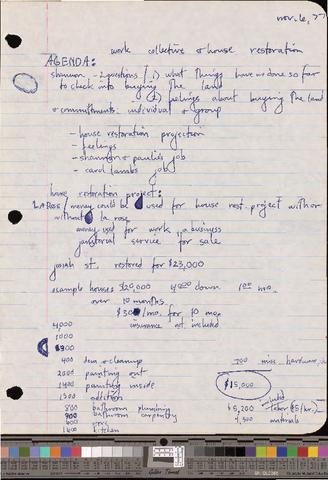 nov. 6, 77
work collective & house restoration
AGENDA:
shannon - 2 questions / 1) what things have we done so far
to check into buying the land
- (2) feelings about buying the land
& commitments. individual & group
- house restoration projection
- feelings
- shannon & paulies job
- carol lambs job
house restoration project:
LA ROSE / money could be used for house rest. project with or
without la rose
money used for work in a business
janitorial service for sale
josiah st. restored for $23,000
example houses $20,000 down mo.
over 10 months
for 10 mo.
4000 insurance not included
1000
400 dem & cleanup 700 misc. hardware
2000 painting out
1400 painting inside $15,000
1300 addition included
800 bathroom plumbing $5,200 labor ($5/hr.)
900 bathroom carpentry materials
600
1600 kitchen